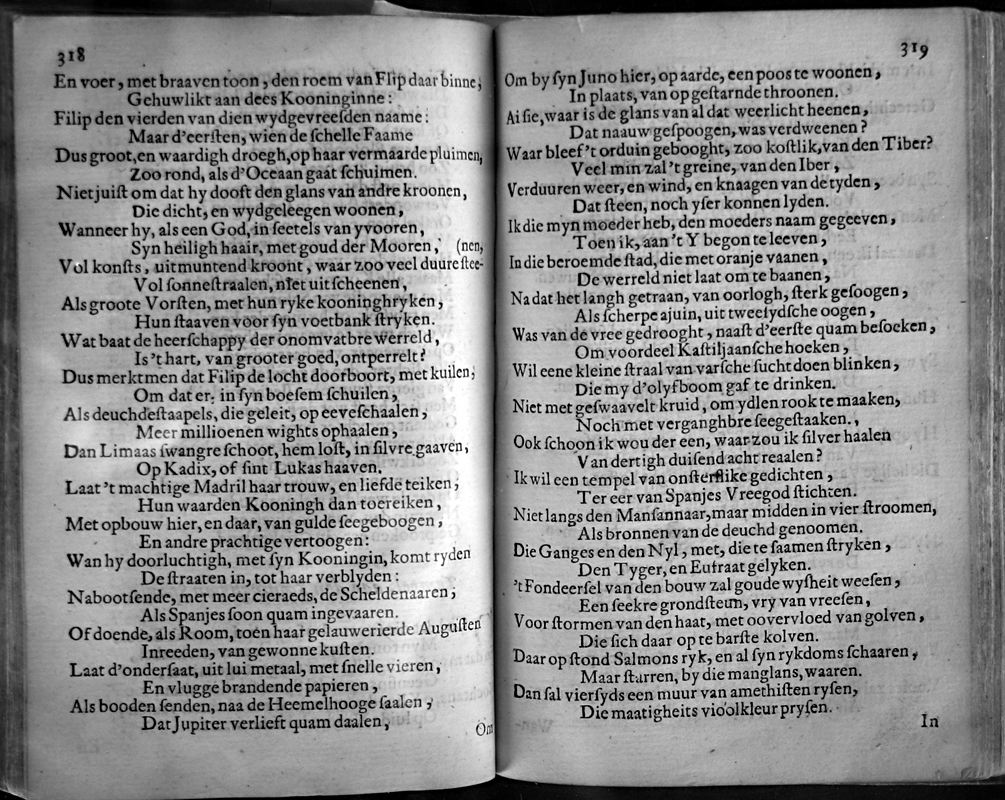 318
En voer, met braaven toon, den roem van Flip daar binne,
Gehuwlikt aan dees Kooninginne:
Filip den vierden van dien wydgevreesden naame:
Maar d'eersten, wien de schelle Faame
Dus groot, en waardigh droegh, op haar vermaarde pluimen,
Zoo rond, als d'Oceaan gaat schuimen.
Niet juist om dat hy dooft den glans van andre kroonen,
Die dicht, en wydgeleegen woonen,
Wanneer hy, als een God, in seetels van yvooren,
Syn heiligh haair, met goud der Mooren, (nen,
Vol konsts, uitmuntend kroont, waar zoo veel duure stee-
Vol sonnestraalen, niet uit scheenen,
Als groote Vorsten, met hun ryke kooninghryken,
Hun staaven voor syn voetbank stryken.
Wat baat de heerschappy der onomvatbre werreld,
Is 't hart, van grooter goed, ontperrelt?
Dus merktmen dat Filip de locht doorboort, met kuilen,
Om dat er, in syn boesem schuilen,
Als deuchdestaapels, die geleit, op eeveschaalen,
Meer millioenen wights ophaalen,
Dan Limaas swangre schoot, hem lost, in silvre gaaven,
Op Kadix, of sint Lukas haaven.
Laat 't machtige Madril haar trouw, en liefde teiken,
Hun waarden Kooningh dan toereiken,
Met opbouw hier, en daar, van gulde seegeboogen,
En andre prachtige vertoogen:
Wan hy doorluchtigh, met syn Kooningin, komt ryden
De straaten in, tot haar verblyden:
Nabootsende, met meer cieraeds, de Scheldenaaren,
Als Spanjes soon quam ingevaaren.
Of doende, als Room, toen haar gelauwerierde Augusten
Inreeden, van gewonne kusten.
Laat d'ondersaat, uit lui metaal, met snelle vieren,
En vlugge brandende papieren,
Als booden senden, naa de Heemelhooge saalen,
Dat Jupiter verlieft quam daalen,
Om
319
Om by syn Juno hier, op aarde, een poos te woonen,
In plaats, van op gestarnde throonen.
Ai sie, waar is de glans van al dat weerlicht heenen,
Dat naauw gespoogen, was verdweenen?
Waar bleef 't orduin gebooght, zoo kostlik, van den Tiber?
Veel min zal 't greine, van den Iber,
Verduuren weer, en wind, en knaagen van de tyden,
Dat steen, noch yser konnen lyden.
Ik die myn moeder heb, den moeders naam gegeeven,
Toen ik, aan 't Y begon te leeven,
In die beroemde stad, die met oranje vaanen,
De werreld niet laat om te baanen,
Na dat het langh getraan, van oorlogh, sterk gesoogen,
Als scherpe ajuin, uit tweesydsche oogen,
Was van de vree gedrooght, naast d'eerste quam besoeken,
Om voordeel Kastiljaansche hoeken,
Wil eene kleine straal van varsche sucht doen blinken,
Die my d'olyfboom gaf te drinken.
Niet met geswaavelt kruid, om ydlen rook te maaken,
Noch met verganghbre seegestaaken.,
Ook schoon ik wou der een, waar zou ik silver haalen
Van dertigh duisend acht reaalen?
Ik wil een tempel van onsterflike gedichten,
Ter eer van Spanjes Vreegod stichten.
Niet langs den Mansannaar, maar midden in vier stroomen,
Als bronnen van de deuchd genoomen.
Die Ganges en den Nyl, met, die te saamen stryken,
Den Tyger, en Eufraat gelyken.
't Fondeersel van den bouw zal goude wysheit weesen,
Een seekre grondsteun, vry van vreesen,
Voor stormen van den haat, met oovervloed van golven,
Die sich daar op te barste kolven.
Daar op stond Salmons ryk, en al syn rykdoms schaaren,
Maar starren, by die manglans, waaren.
Dan sal viersyds een muur van amethisten rysen,
Die maatigheits vioolkleur prysen.
In